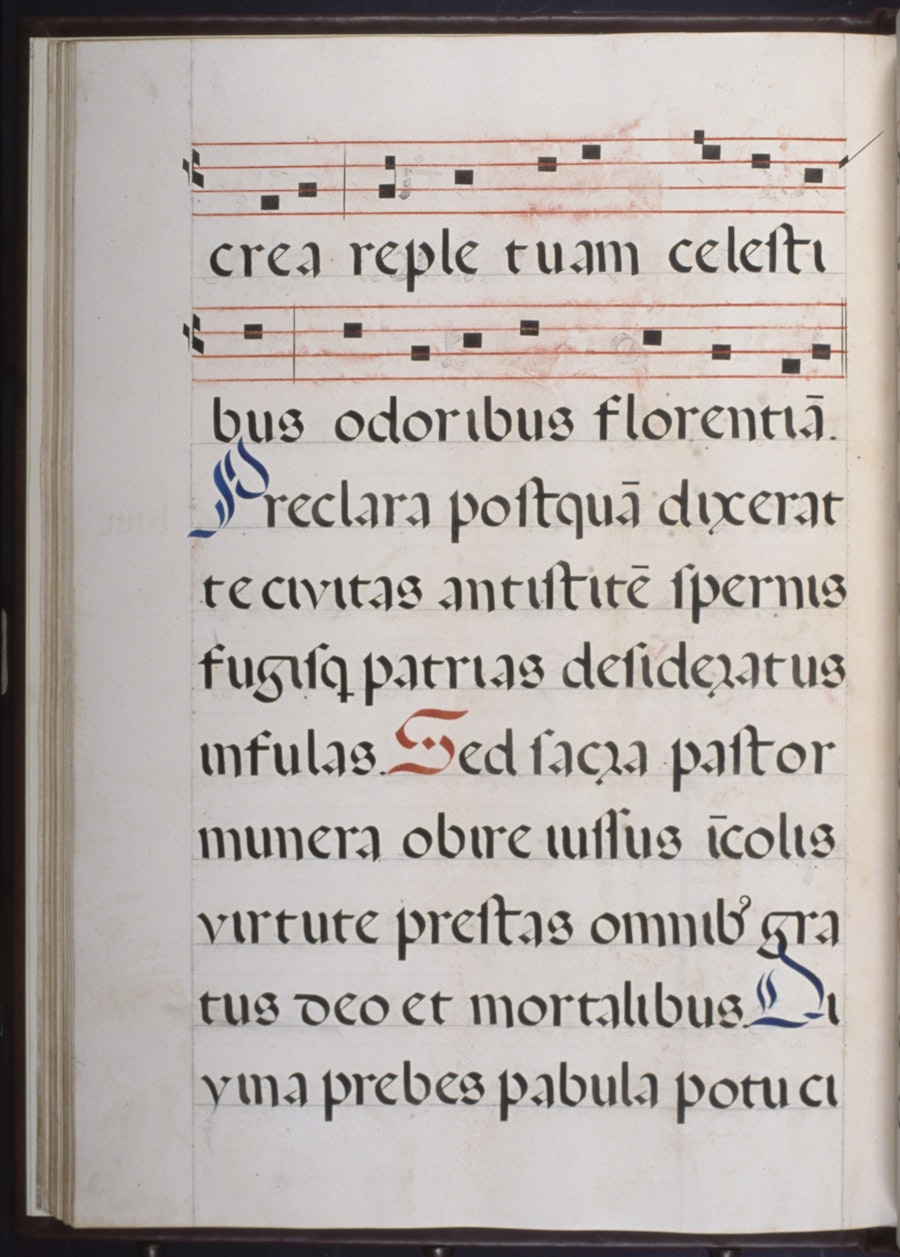 crea reple tuam celeſti
bus odoribus florentiā.
Preclara poſtquā dixerat
te civitas antiſtitē ſpernis
fugiſq patrias deſideꝛatus
infulas. Sed ſacꝛa paſtor
munera obire iuſſus īcolis
virtute preſtas omnibꝰ gra
tus deo et mortalibus. Di
vina prebes pabula potu ci